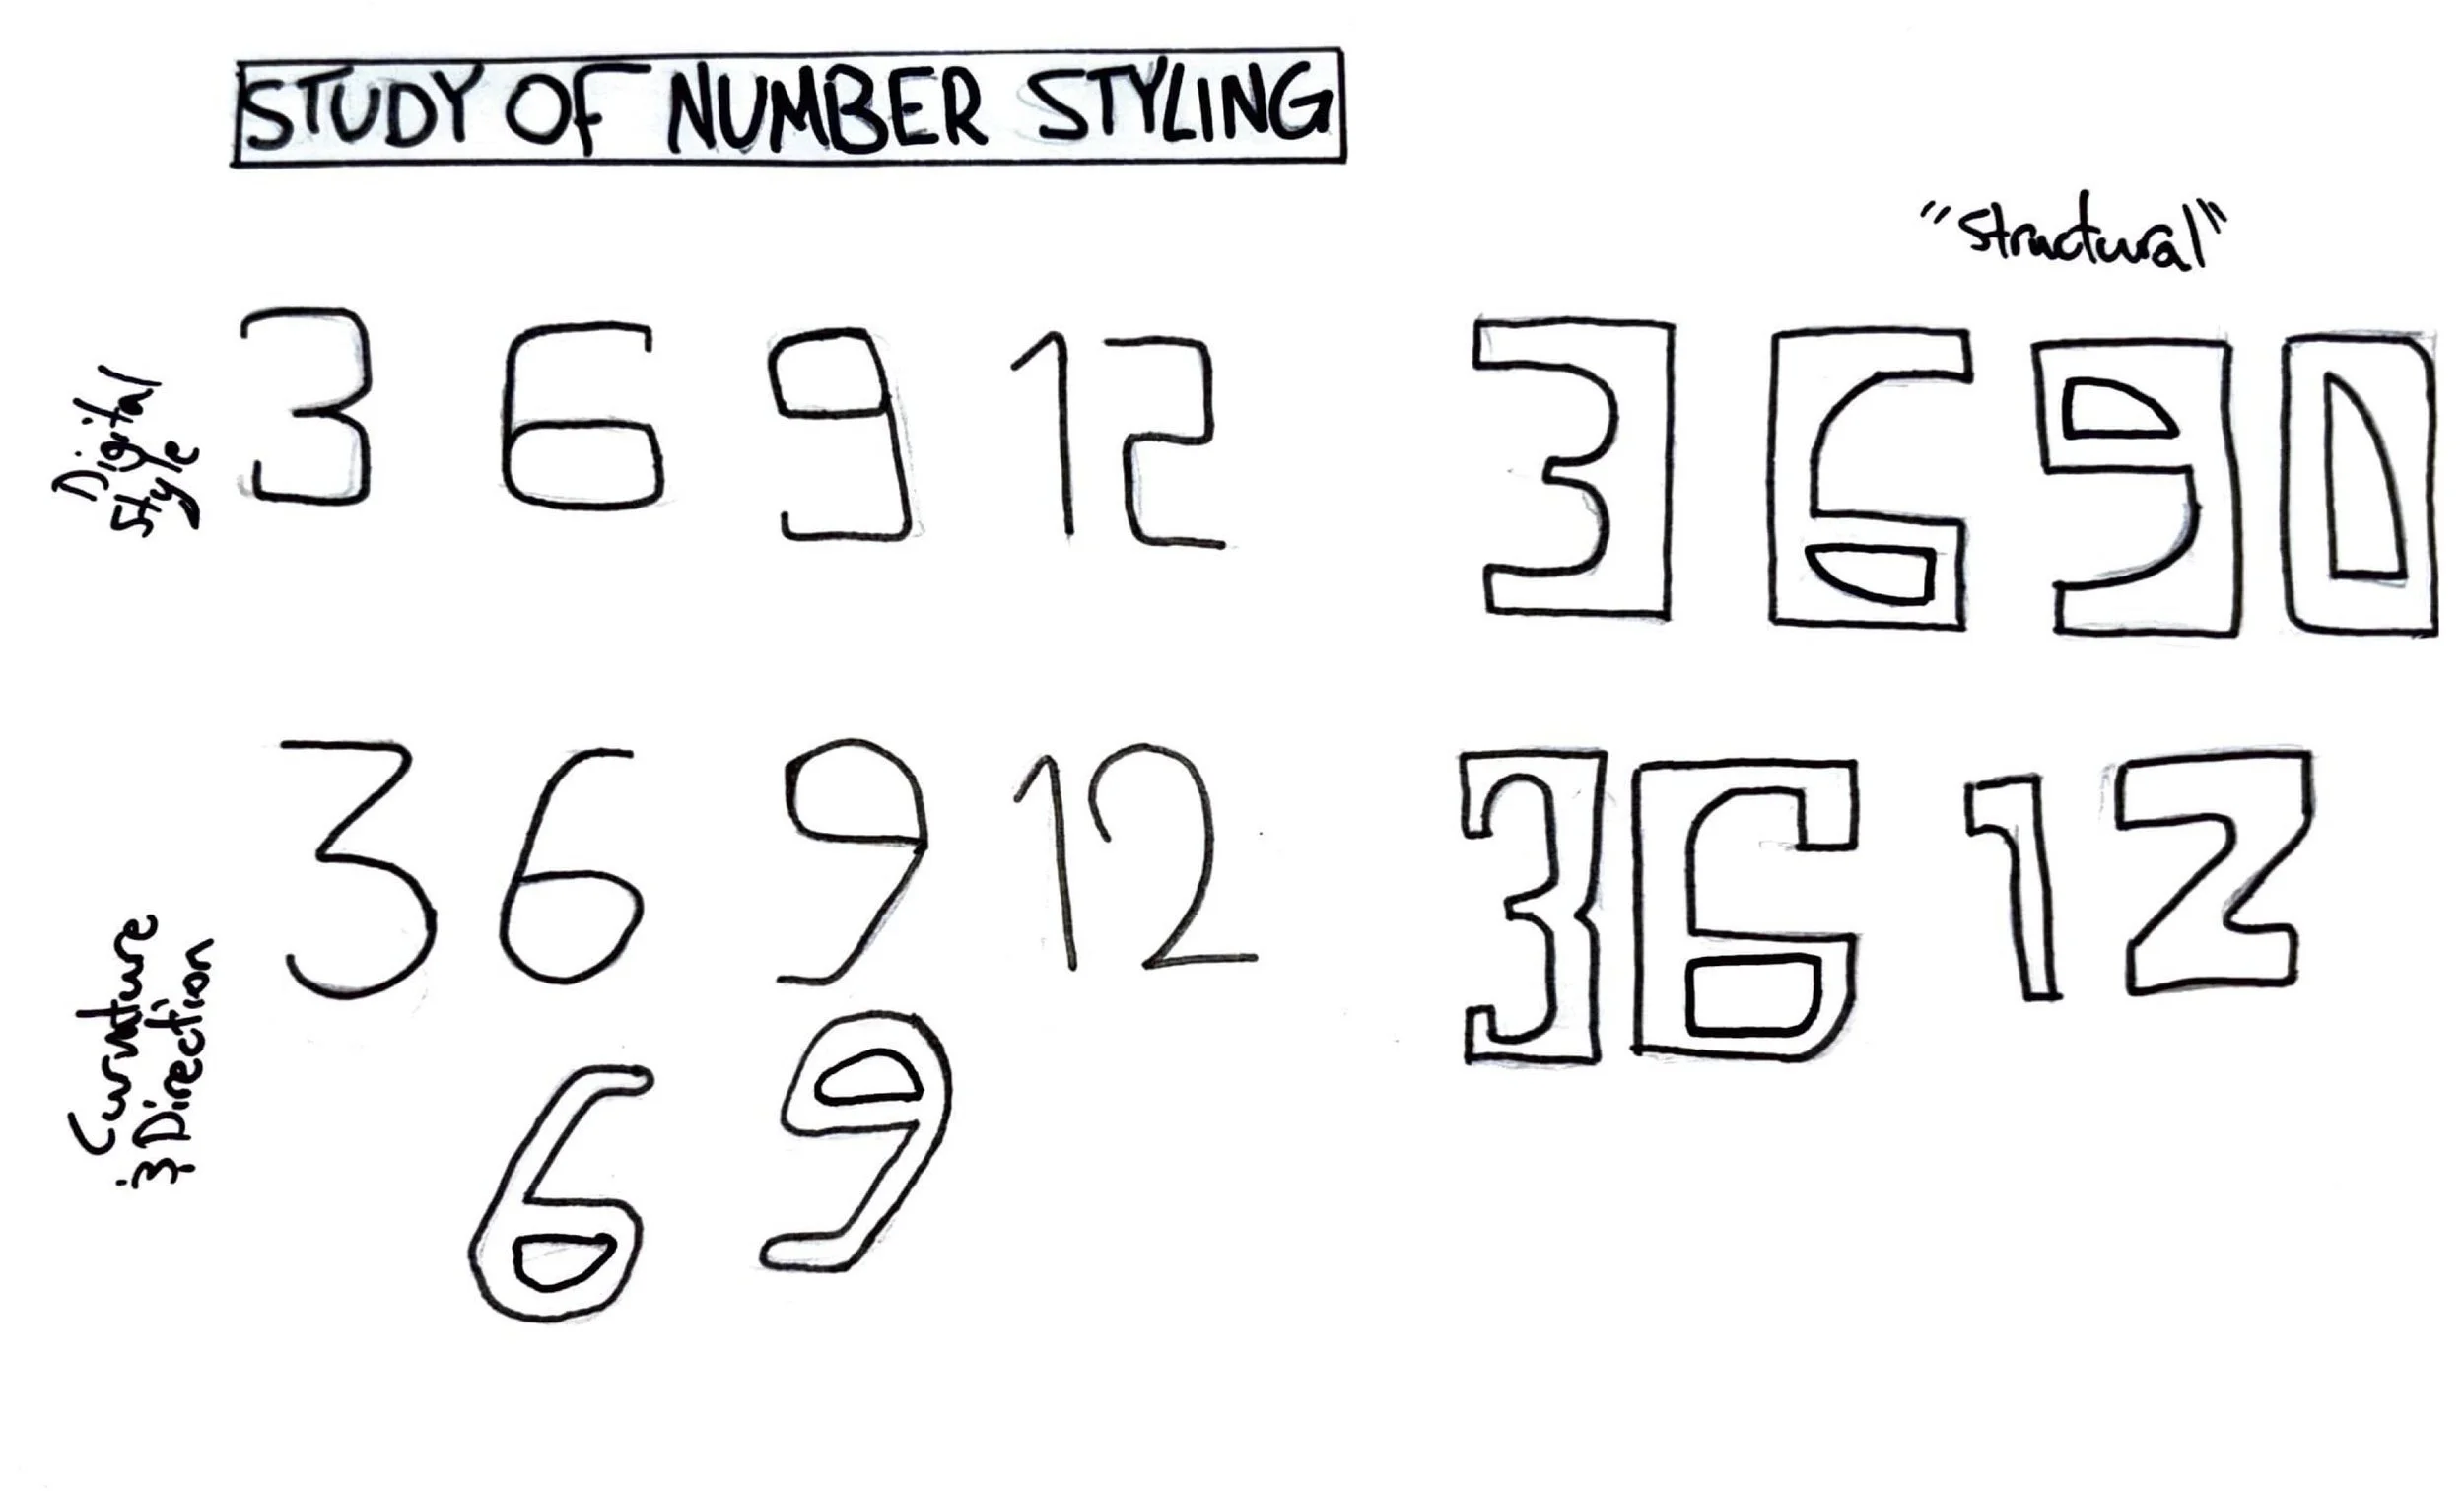 STUDY OF NUMBER STYLING
"structural"
Digital
Style
3 6 9 12
3 6 9 0
Curvature
& Direction
3 6 9 12
3 6 1 2
6 9